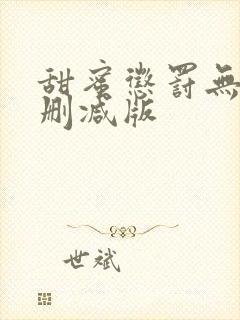 甜蜜懲罰無
刪減版
世斌